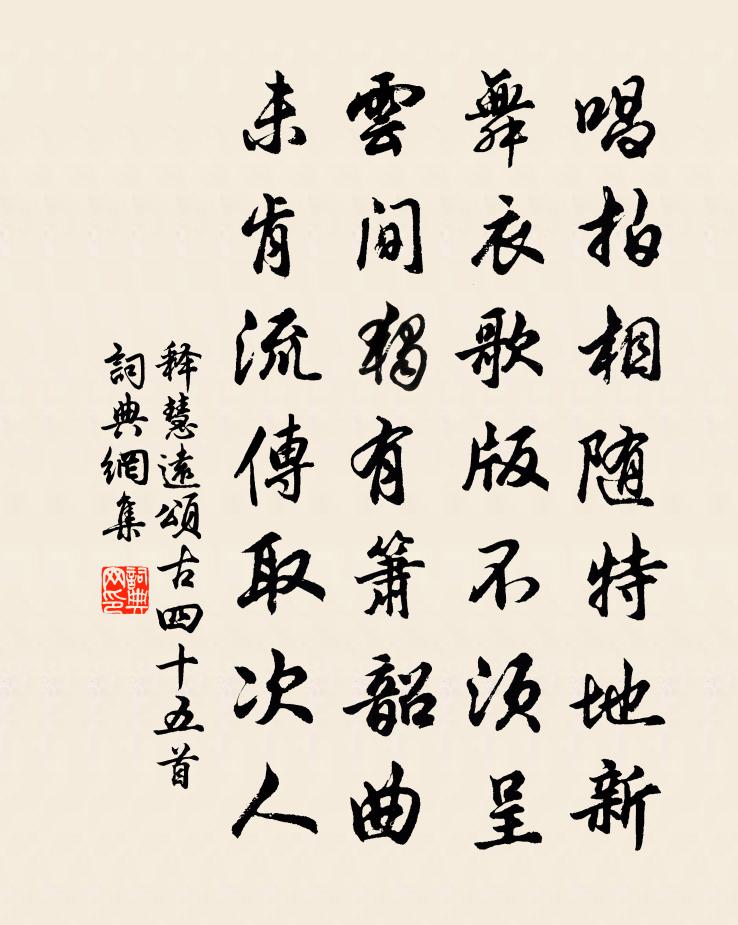 唱拍相随特地新
舞衣歌版不须呈
雲間獨有簫韶曲
未肯流傳取次人
释慧遠頌古四十五首
詞典網集
詞典网印